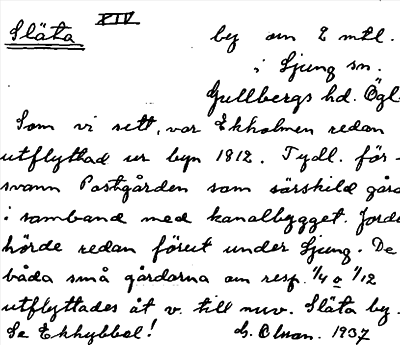 XIV
Släta by om 2 mtl.
i Ljung sn.
Gullbergs hd. Ögl
Som vi sett, var Ekholmen redan
utflyttad ur byn 1812. Tydl. för-
svann Postgården som särskild gård
i samband med kanalbygget. Jorde
hörde redan förut under Ljung. De
båda små gårdarna om resp. 1/4 o 1/12
utflyttades åt v. till nuv. Släta by.
Se Ekhybbel! 1937